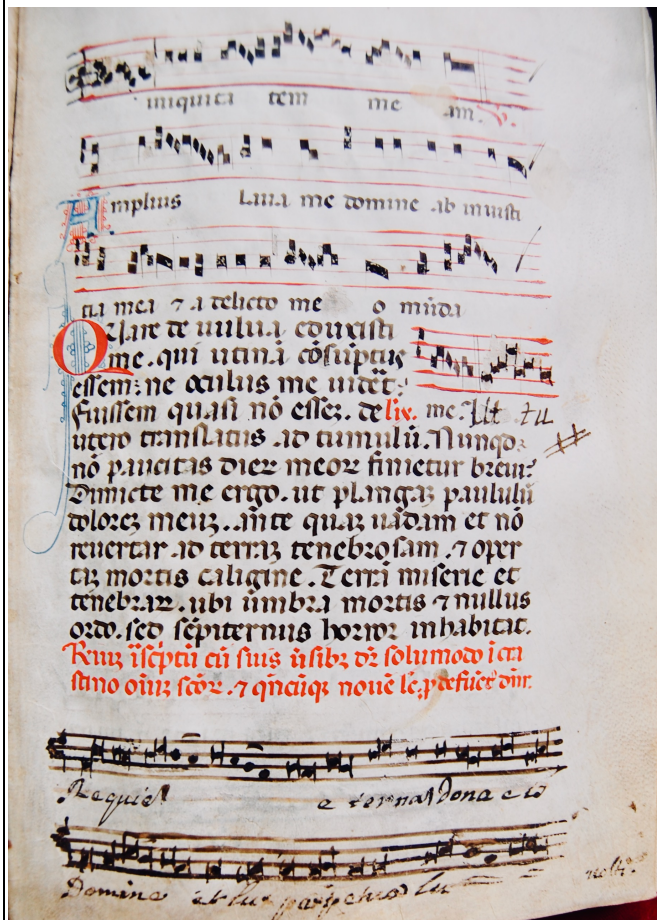 iniquita tem me am. V.
Amplius Laua me domine ab iniusti
tia mea ⁊ a delicto me o munda
Quare de uulua eduxisti
me. qui utinā cōsūptus
essem: ne oculus me uidēt.
Fuissem quasi nō essez. de lix. me. Ut tu
utero translatus ad tumulū. Nunqd
nō paucitas dierꝝ meorꝝ finietur breui?
Dimicte me ergo. ut plangaꝫ paululū
doloreꝫ meuꝫ. ante quaꝫ uadam et nō
reuertar ad terraꝫ tenebrosam. ⁊ oper
taꝫ mortis caligine. Terrā miserie et
tenebraꝝ. ubi ūmbra mortis ⁊ nullus
ordo. sed sēpiternus horror inhabitat.
cū suis ūsibꝫ dꝛ solumodo ī cra
stino oīuꝫ scōꝝ. ⁊
Requiem e ternam Dona e is
Domine et lux perpetua lu